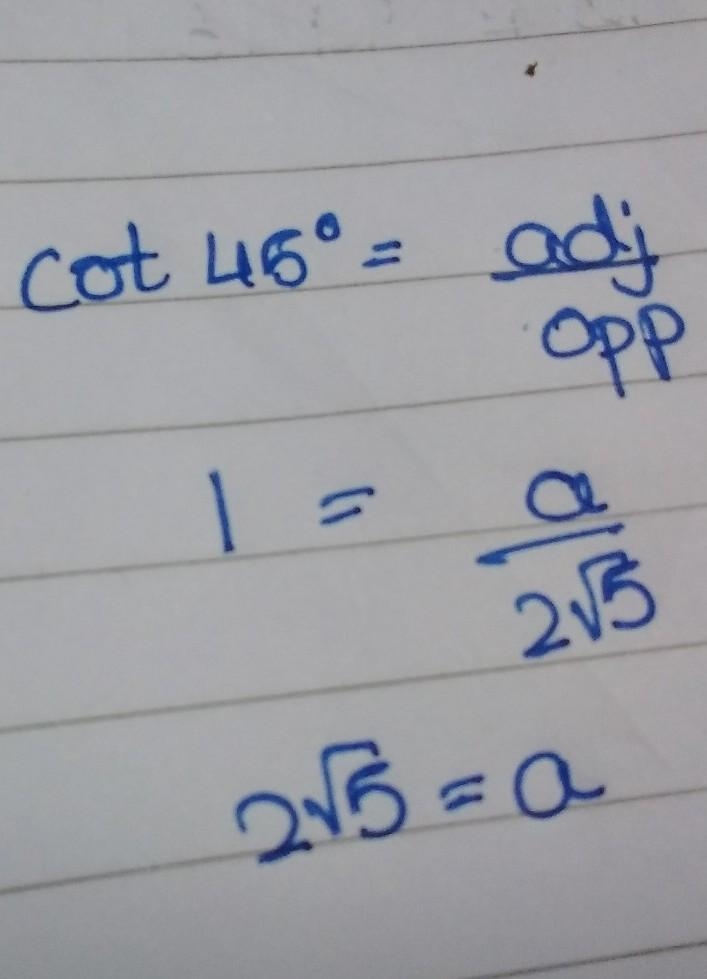 cot 45° = adj/opp
1 = a/2√5
2√5 = a